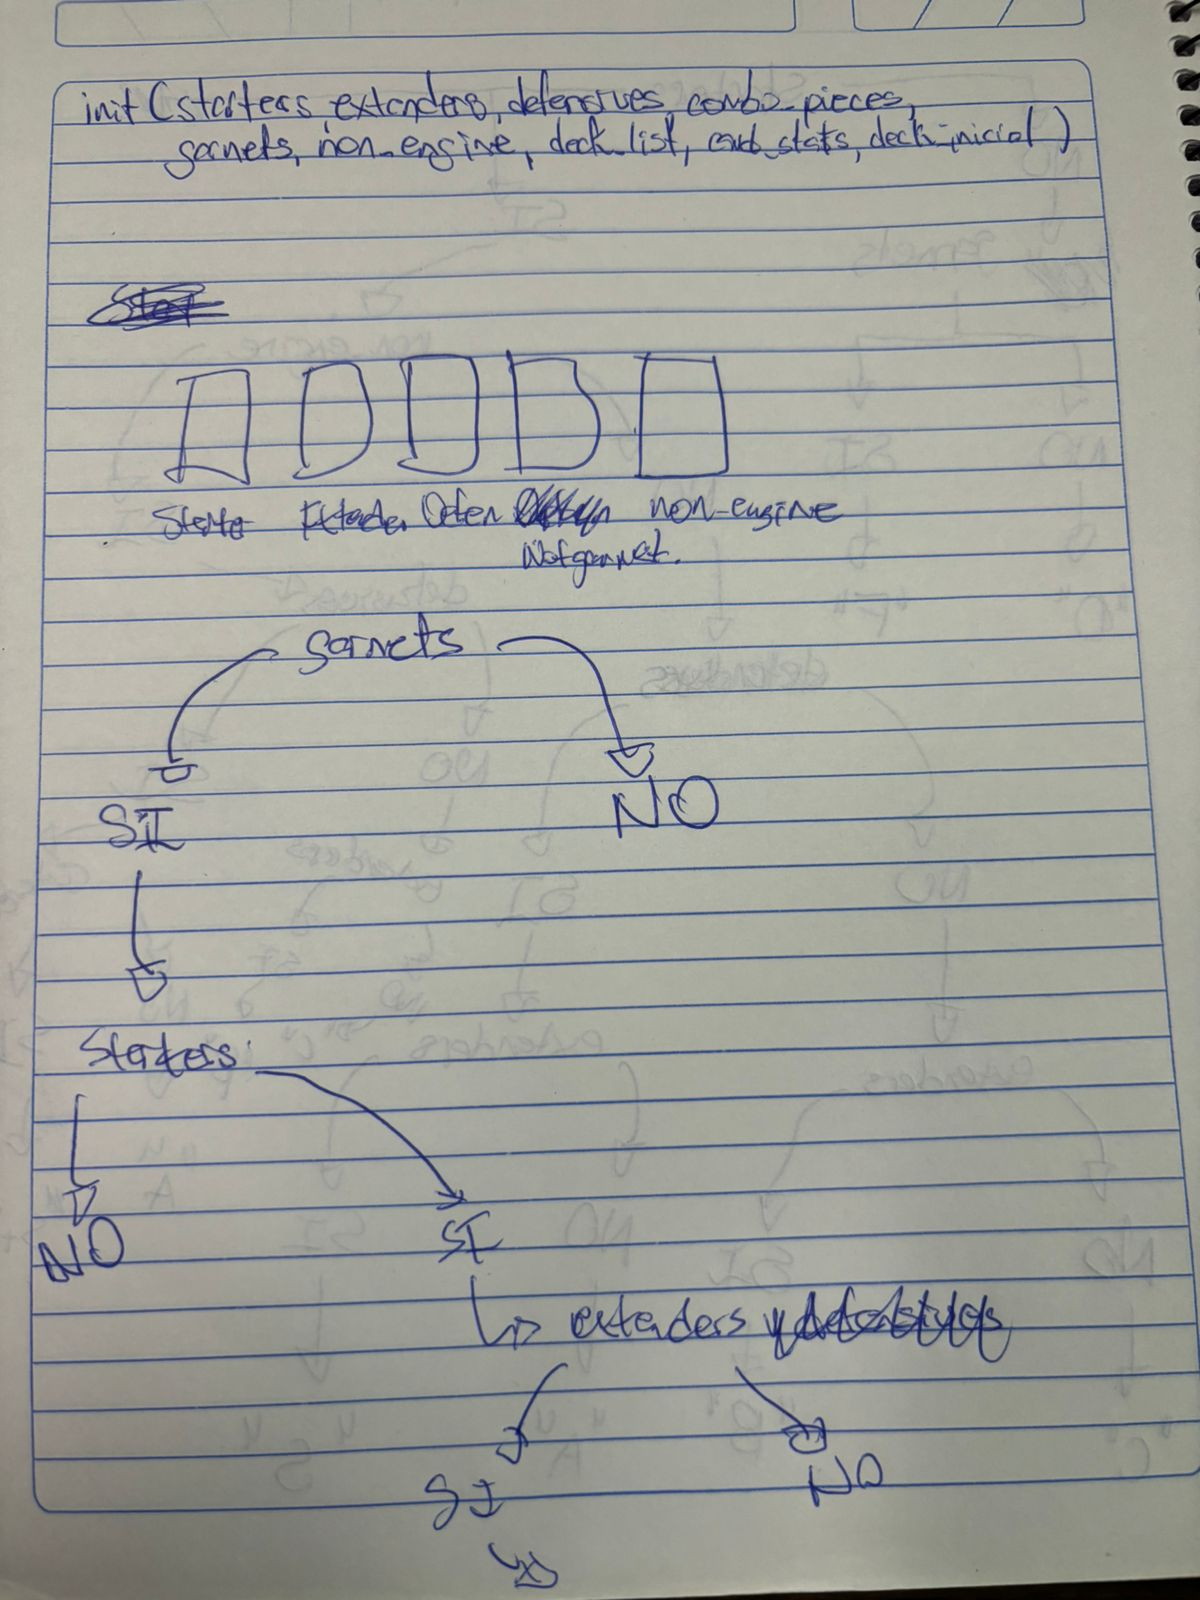 init (starters, extenders, defensives, combo_pieces,
garnets, non_engine, deck_list, card_stats, deck_inicial)
Starter Extender Defen non-engine
Not garnet.
garnets
SI NO
Starters
NO SI
extenders
SI NO